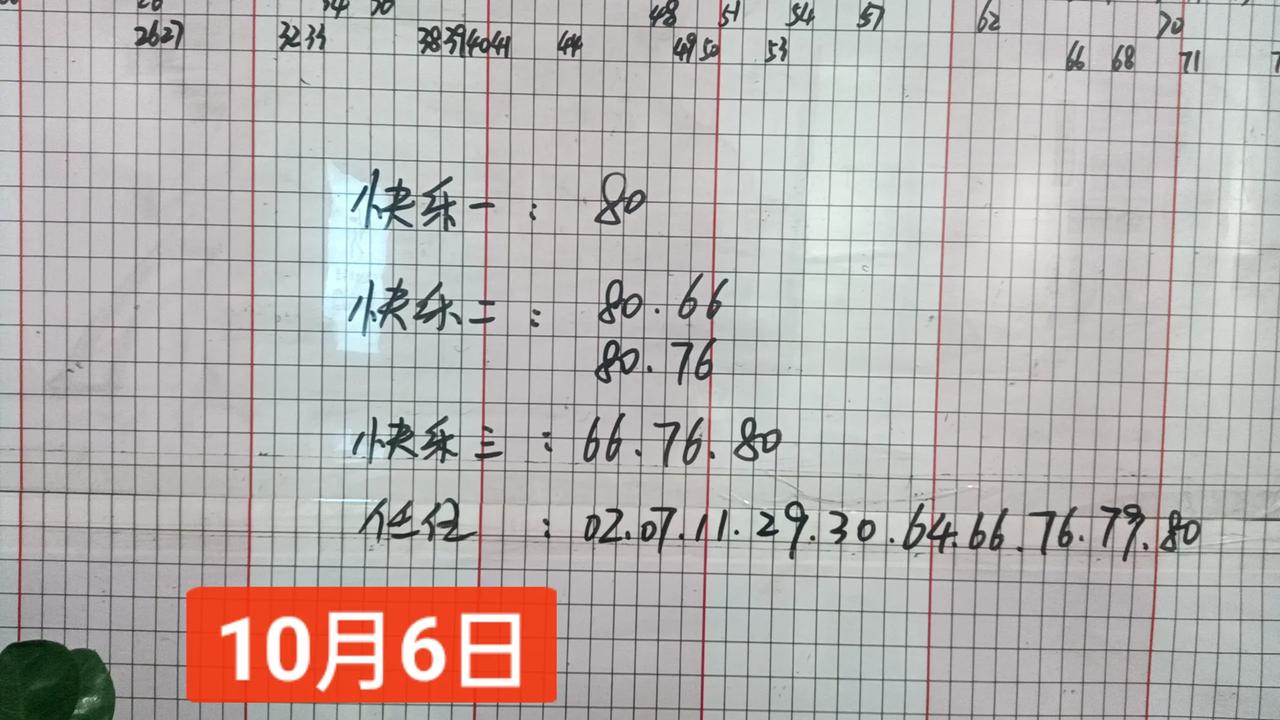 48 51 54 57 62 70
26 27 32 33 38 39 40 41 44 49 50 53 66 68 71
快乐一: 80
快乐二: 80.66
80.76
快乐三: 66.76.80
任任: 02.07.11.29.30.64.66.76.79.80
10月6日